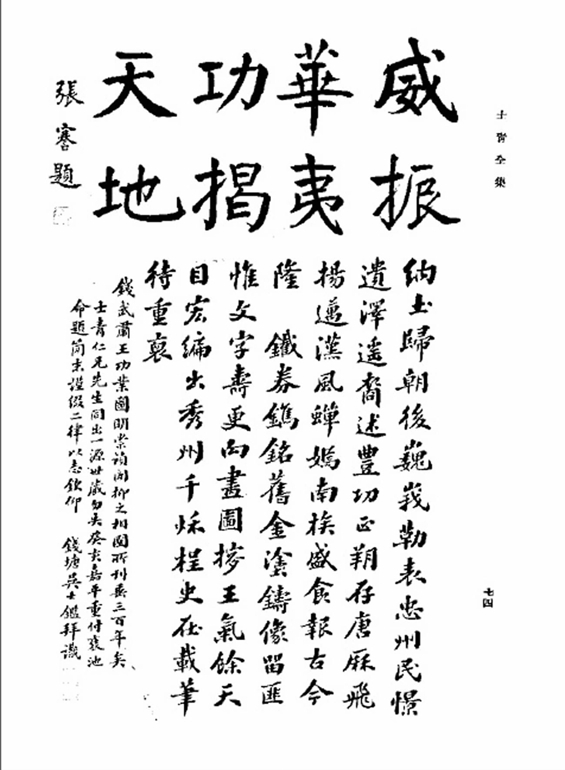 士青全集
威振
華夷
功揭
天地
張謇題
納土歸朝後巍峩勒表忠州民憬
遺澤遥裔述豐功正朔存唐厤飛
揚邁漢風蟬嫣南族盛食報古今
隆 鐵券鐫銘舊金塗鑄像留匪
惟文字壽更向畫圖摉王氣餘天
目宏編出秀州千秌桯史在載筆
待重裒
錢武肅王功業圖明崇禎間抑之相國所刊垂三百年矣
士青仁兄先生同出一源世歲勿失癸亥嘉平重付裝池
命題簡末謹綴二律以志欽仰 錢塘吳士鑑拜識
七四